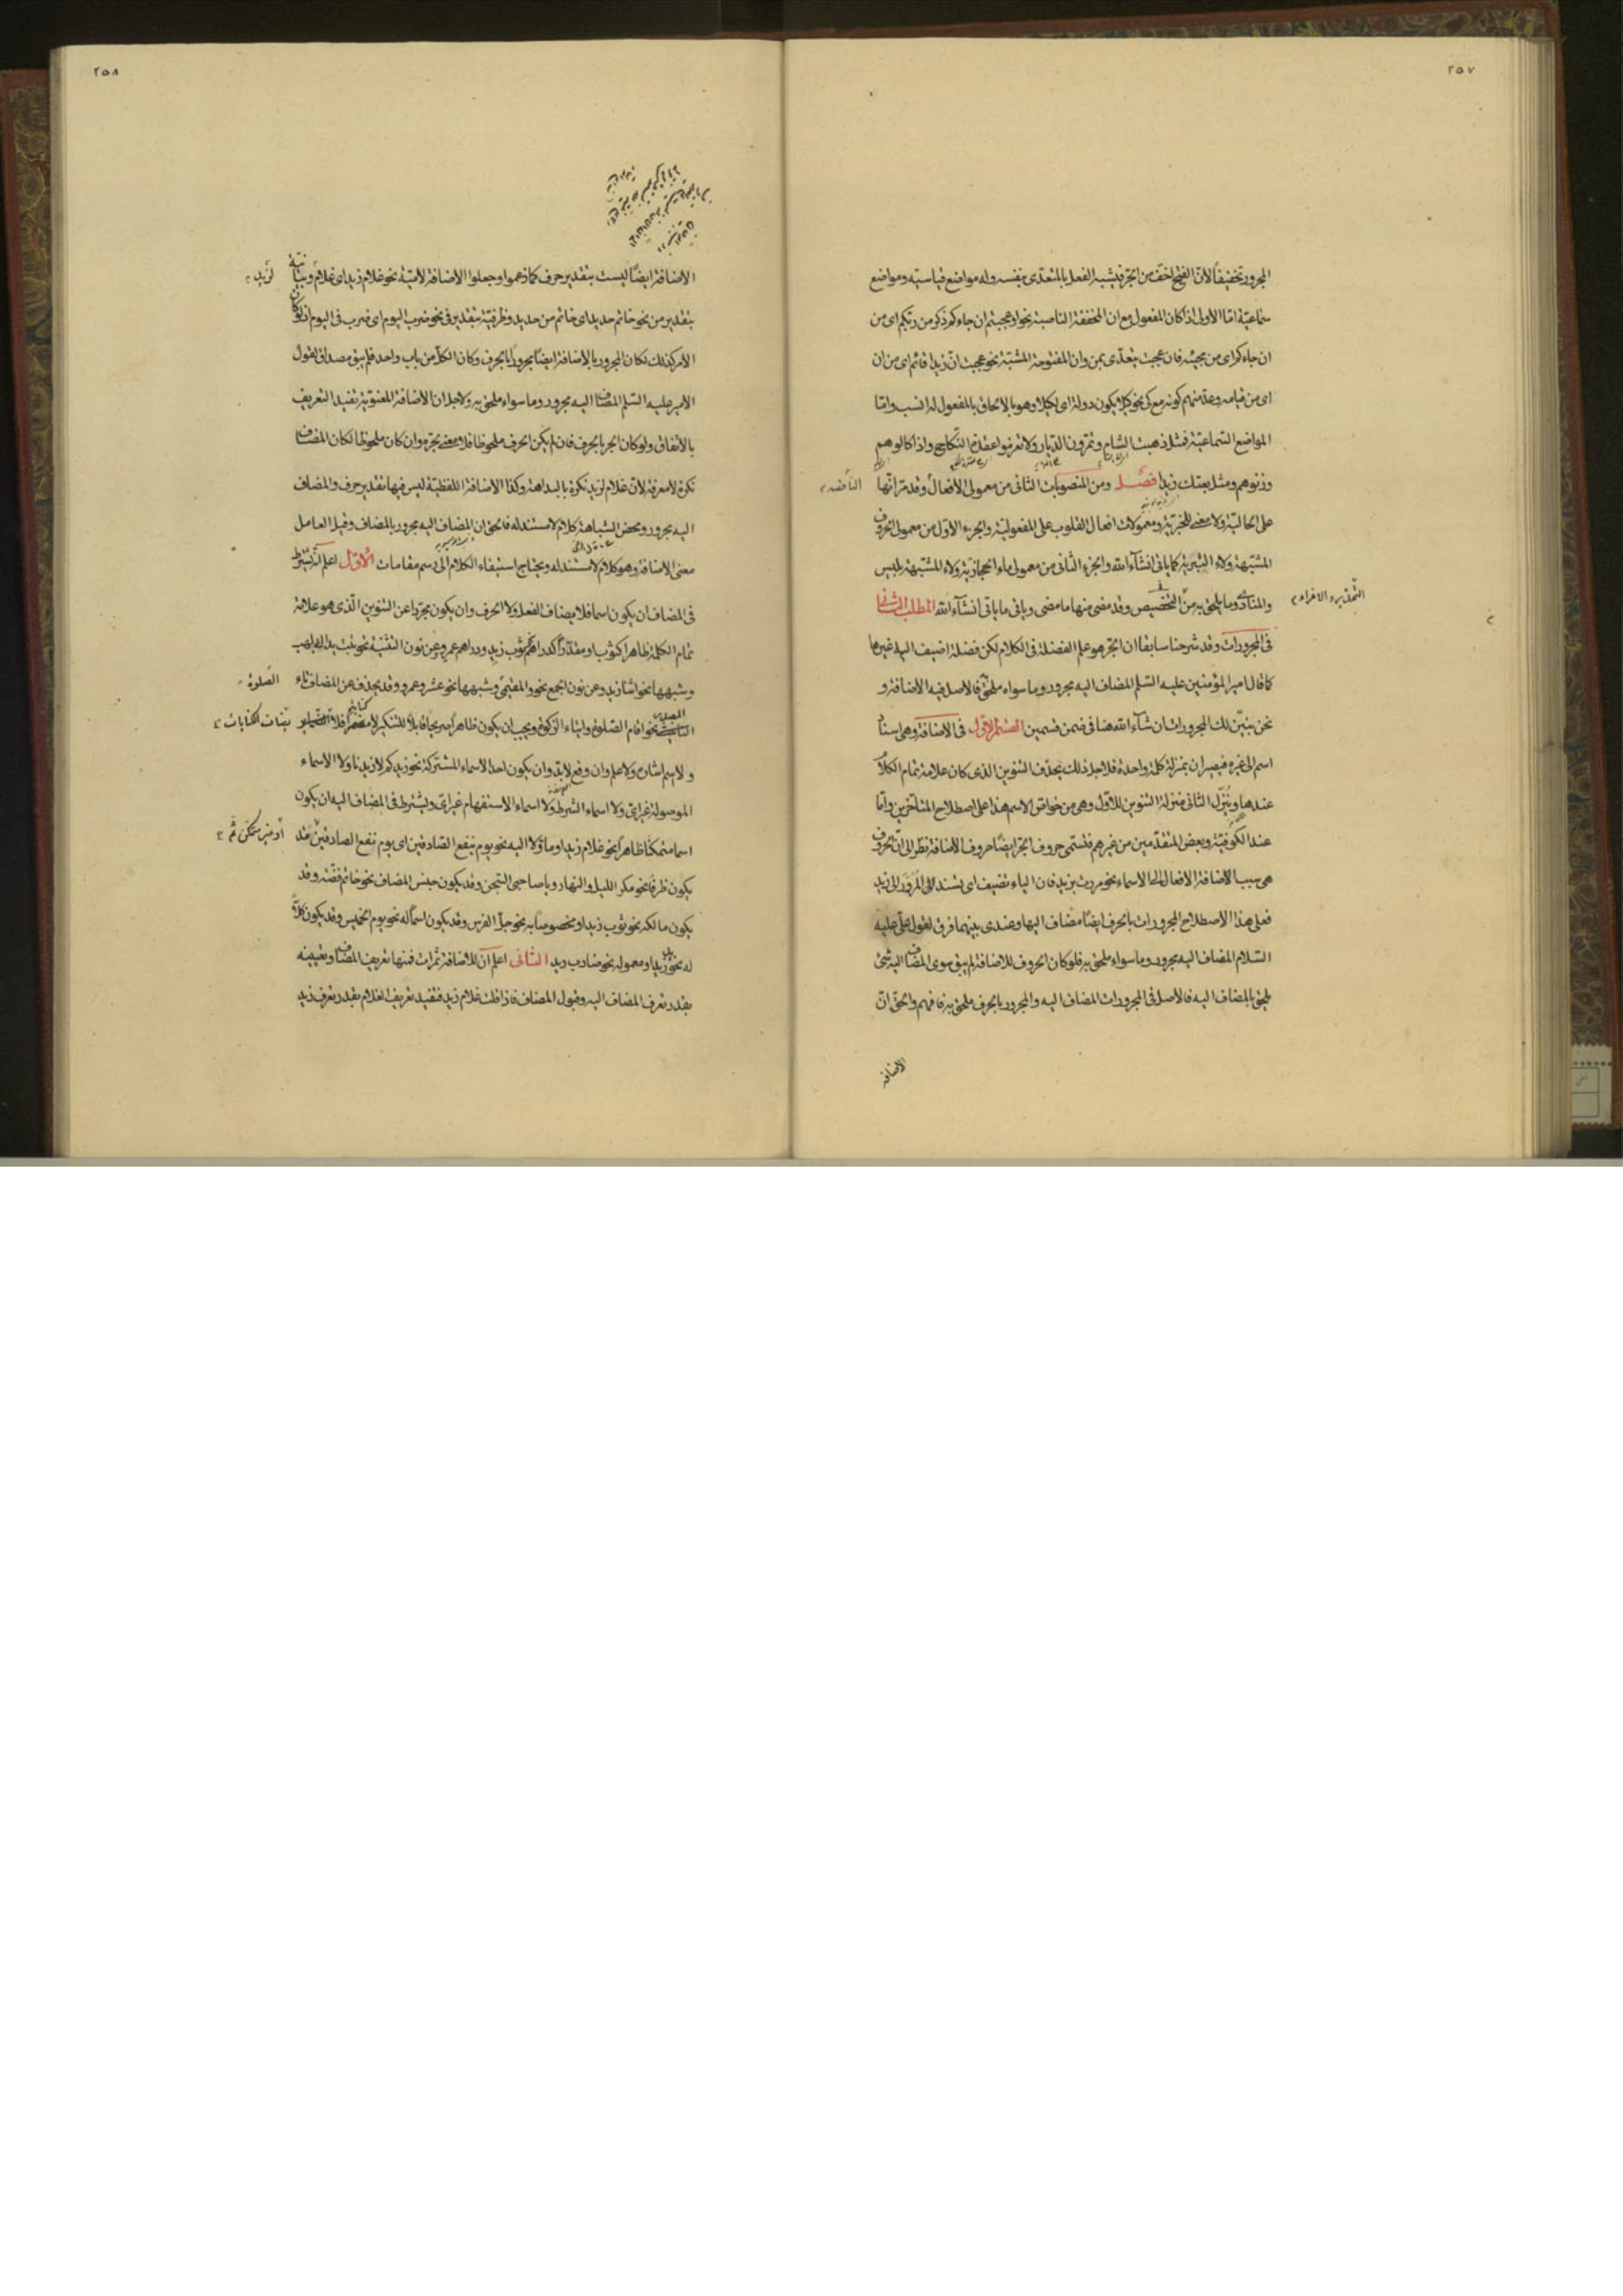 ٢٥٧
المجرور تخفيفا لان الفتح اخف من الجر فيشبه الفعل بالمتعدى بنفسه وله مواضع قياسية ومواضع
سماعية اما الاولى اذا كان المفعول مع ان المخففة الناصبة نحو او عجبتم ان جاءكم ذكر من ربكم اى من
ان جاءكم اى من مجيئه فان عجبت يتعدى بمن وان المفتوحة المشبهة نحو عجبت ان زيدا قائم اى من ان
اى من قيامه وعد منهم كونه مع كى نحو كيلا يكون دولة اى لكيلا وهو بالالحاق بالمفعول له انسب واما
المواضع السماعية فمثل ذهبت الشام وتمرون الديار ولا تعزموا عقدة النكاح واذا كالوهم
وزنوهم ومثل بعتك زيدا فصل ومن المنصوبات الثانى من معمولى الافعال وقد مر انها
الناقصة
على الحالية ولا معنى للخبرية ومعمولات افعال القلوب على المفعولية والجزء الاول من معمولى الحروف
المشبهة ولاء التبرية كما ياتى انشآء الله والجزء الثانى من معمولى ماء الحجازية ولاء المشبهة بليس
والمنادى وما يلحق به من التخصيص وقد مضى منها ما مضى وياتى ما ياتى انشآء الله المطلب الثانى
التحذير والاغراء
فى المجرورات وقد شرحنا سابقا ان الجر هو علم الفضلة فى الكلام لكن فضلة اضيف اليه غيرها
كما قال امير المؤمنين عليه السلم المضاف اليه مجرور وما سواه ملحق به فالاصل فيه الاضافة و
نحن نبين لك المجرورات ان شآء الله هنا فى ضمن قسمين القسم الاول فى الاضافة وهى اسناد
اسم الى غيره فيصيران بمنزلة كلمة واحدة فلاجل ذلك يحذف التنوين الذى كان علامة تمام الكلام
عندها وينزل الثانى منزلة التنوين للاول وهى من خواص الاسم هذا على اصطلاح المتاخرين واما
عند الكوفية وبعض المتقدمين من غيرهم فتسمى حروف الجر ايضا حروف الاضافة نظرا الى ان الحروف
هى سبب الاضافة الافعال الى الاسماء نحو مررت بزيد فان الباء تضيف اى يسند المرور الى زيد
فعلى هذا الاصطلاح المجرورات بالحرف ايضا مضاف اليها وعندى بينهما فرق لقول على عليه
السلام المضاف اليه مجرور وما سواه ملحق به فلو كان الحروف للاضافة لم يبق سوى المضاف اليه شئ
يلحق بالمضاف اليه فالاصل فى المجرورات المضاف اليه والمجرور بالحرف ملحق به فافهم والحق ان
الاضافة
٢٥٨
الاضافة ايضا ليست بتقدير حرف كما زعموا وجعلوا الاضافة لامية نحو غلام زيد اى غلام وبيانية
لزيد
بتقدير من نحو خاتم حديد اى خاتم من حديد وظرفية بتقدير فى نحو ضرب اليوم اى ضرب فى اليوم اذ لو كان
الامر كذلك لكان المجرور بالاضافة ايضا مجرورا بالحرف وكان الكل من باب واحد فلم يبق مصداق لقول
الامير عليه السلم المضاف اليه مجرور وما سواه ملحق به ولاجل ان الاضافة المعنوية تفيد التعريف
بالاتفاق ولو كان الجر بالحرف فان لم يكن الحرف ملحوظا فلا معنى لجره وان كان ملحوظا لكان المضاف
نكرة لا معرفة لان غلام لزيد نكرة بالبداهة وكذا الاضافة اللفظية ليس فيها تقدير حرف والمضاف
اليه مجرور ومحض الشباهة كلام لا مستند له فالحق ان المضاف اليه مجرور بالمضاف وقيل العامل
معنى الاضافة وهو كلام لا مستند له ويحتاج استيفاء الكلام الى رسم مقامات الاول اعلم انه يشترط
فى المضاف ان يكون اسما فلا يضاف الفعل ولا الحرف وان يكون مجردا عن التنوين الذى هو علامة
تمام الكلمة ظاهرا كثوب او مقدرا كدراهم نحو ثوب زيد ودراهم عمرو وعن نون التثنية نحو تبت يدا ابى لهب
وشبهها نحو اثنا زيد وعن نون الجمع نحو والمقيمى وشبهها نحو عشرو عمرو وقد يحذف عن المضاف تاء
الصلوة
التانيث نحو اقام الصلوة وايتاء الزكوة ويجب ان يكون ظاهرا صريحا قابلا للتنكير لا مضمرا فلا
بتات الكنايات
ولا اسم اشارة ولا علم وان وقع لابد وان يكون احد الاسماء المشتركة نحو زيدكم لا زيدنا ولا الاسماء
الموصولة غير اى ولا اسماء الشرط ولا اسماء الاستفهام غير اى ويشترط فى المضاف اليه ان يكون
اسما متمكنا ظاهرا نحو غلام زيد او ماؤلا اليه نحو يوم ينفع الصادقين اى يوم نفع الصادقين وقد
او غير متمكن
يكون ظرفا نحو مكر الليل والنهار ويا صاحبى السجن وقد يكون جنس المضاف نحو خاتم فضة وقد
يكون مالكه نحو ثوب زيد او مخصوصا به نحو جل الفرس وقد يكون اسما له نحو يوم الخميس وقد يكون كلا
له نحو يد زيد او معموله نحو ضارب زيد الثانى اعلم ان للاضافة ثمرات فمنها تعريف المضاف وتعيينه
بقدر تعرف المضاف اليه وقبول المضاف فاذا قلت غلام زيد فتفيد تعريف الغلام بقدر تعرف زيد